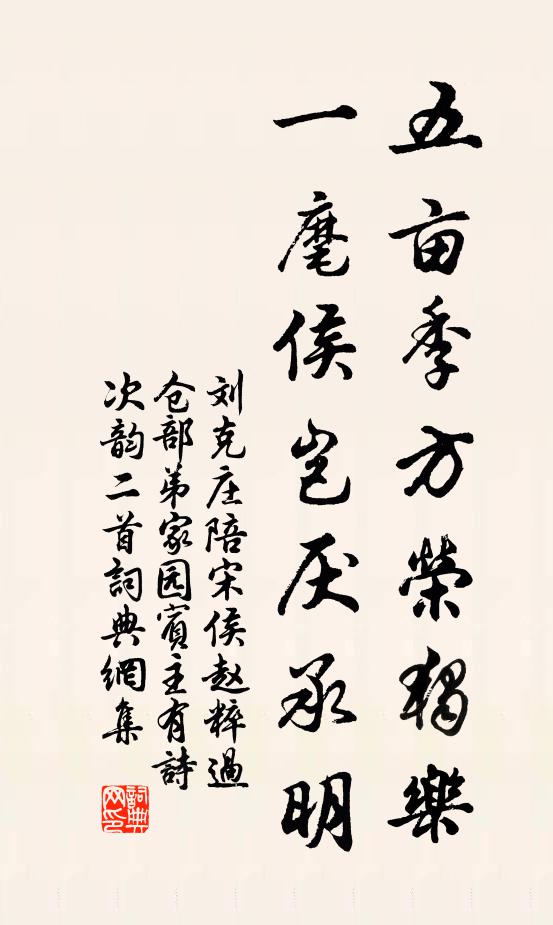 五亩季方榮獨樂
一麾侯岂厌承明
刘克庄陪宋侯赵粹過
仓部弟家园賓主有詩
次韵二首詞典網集
詞典网印